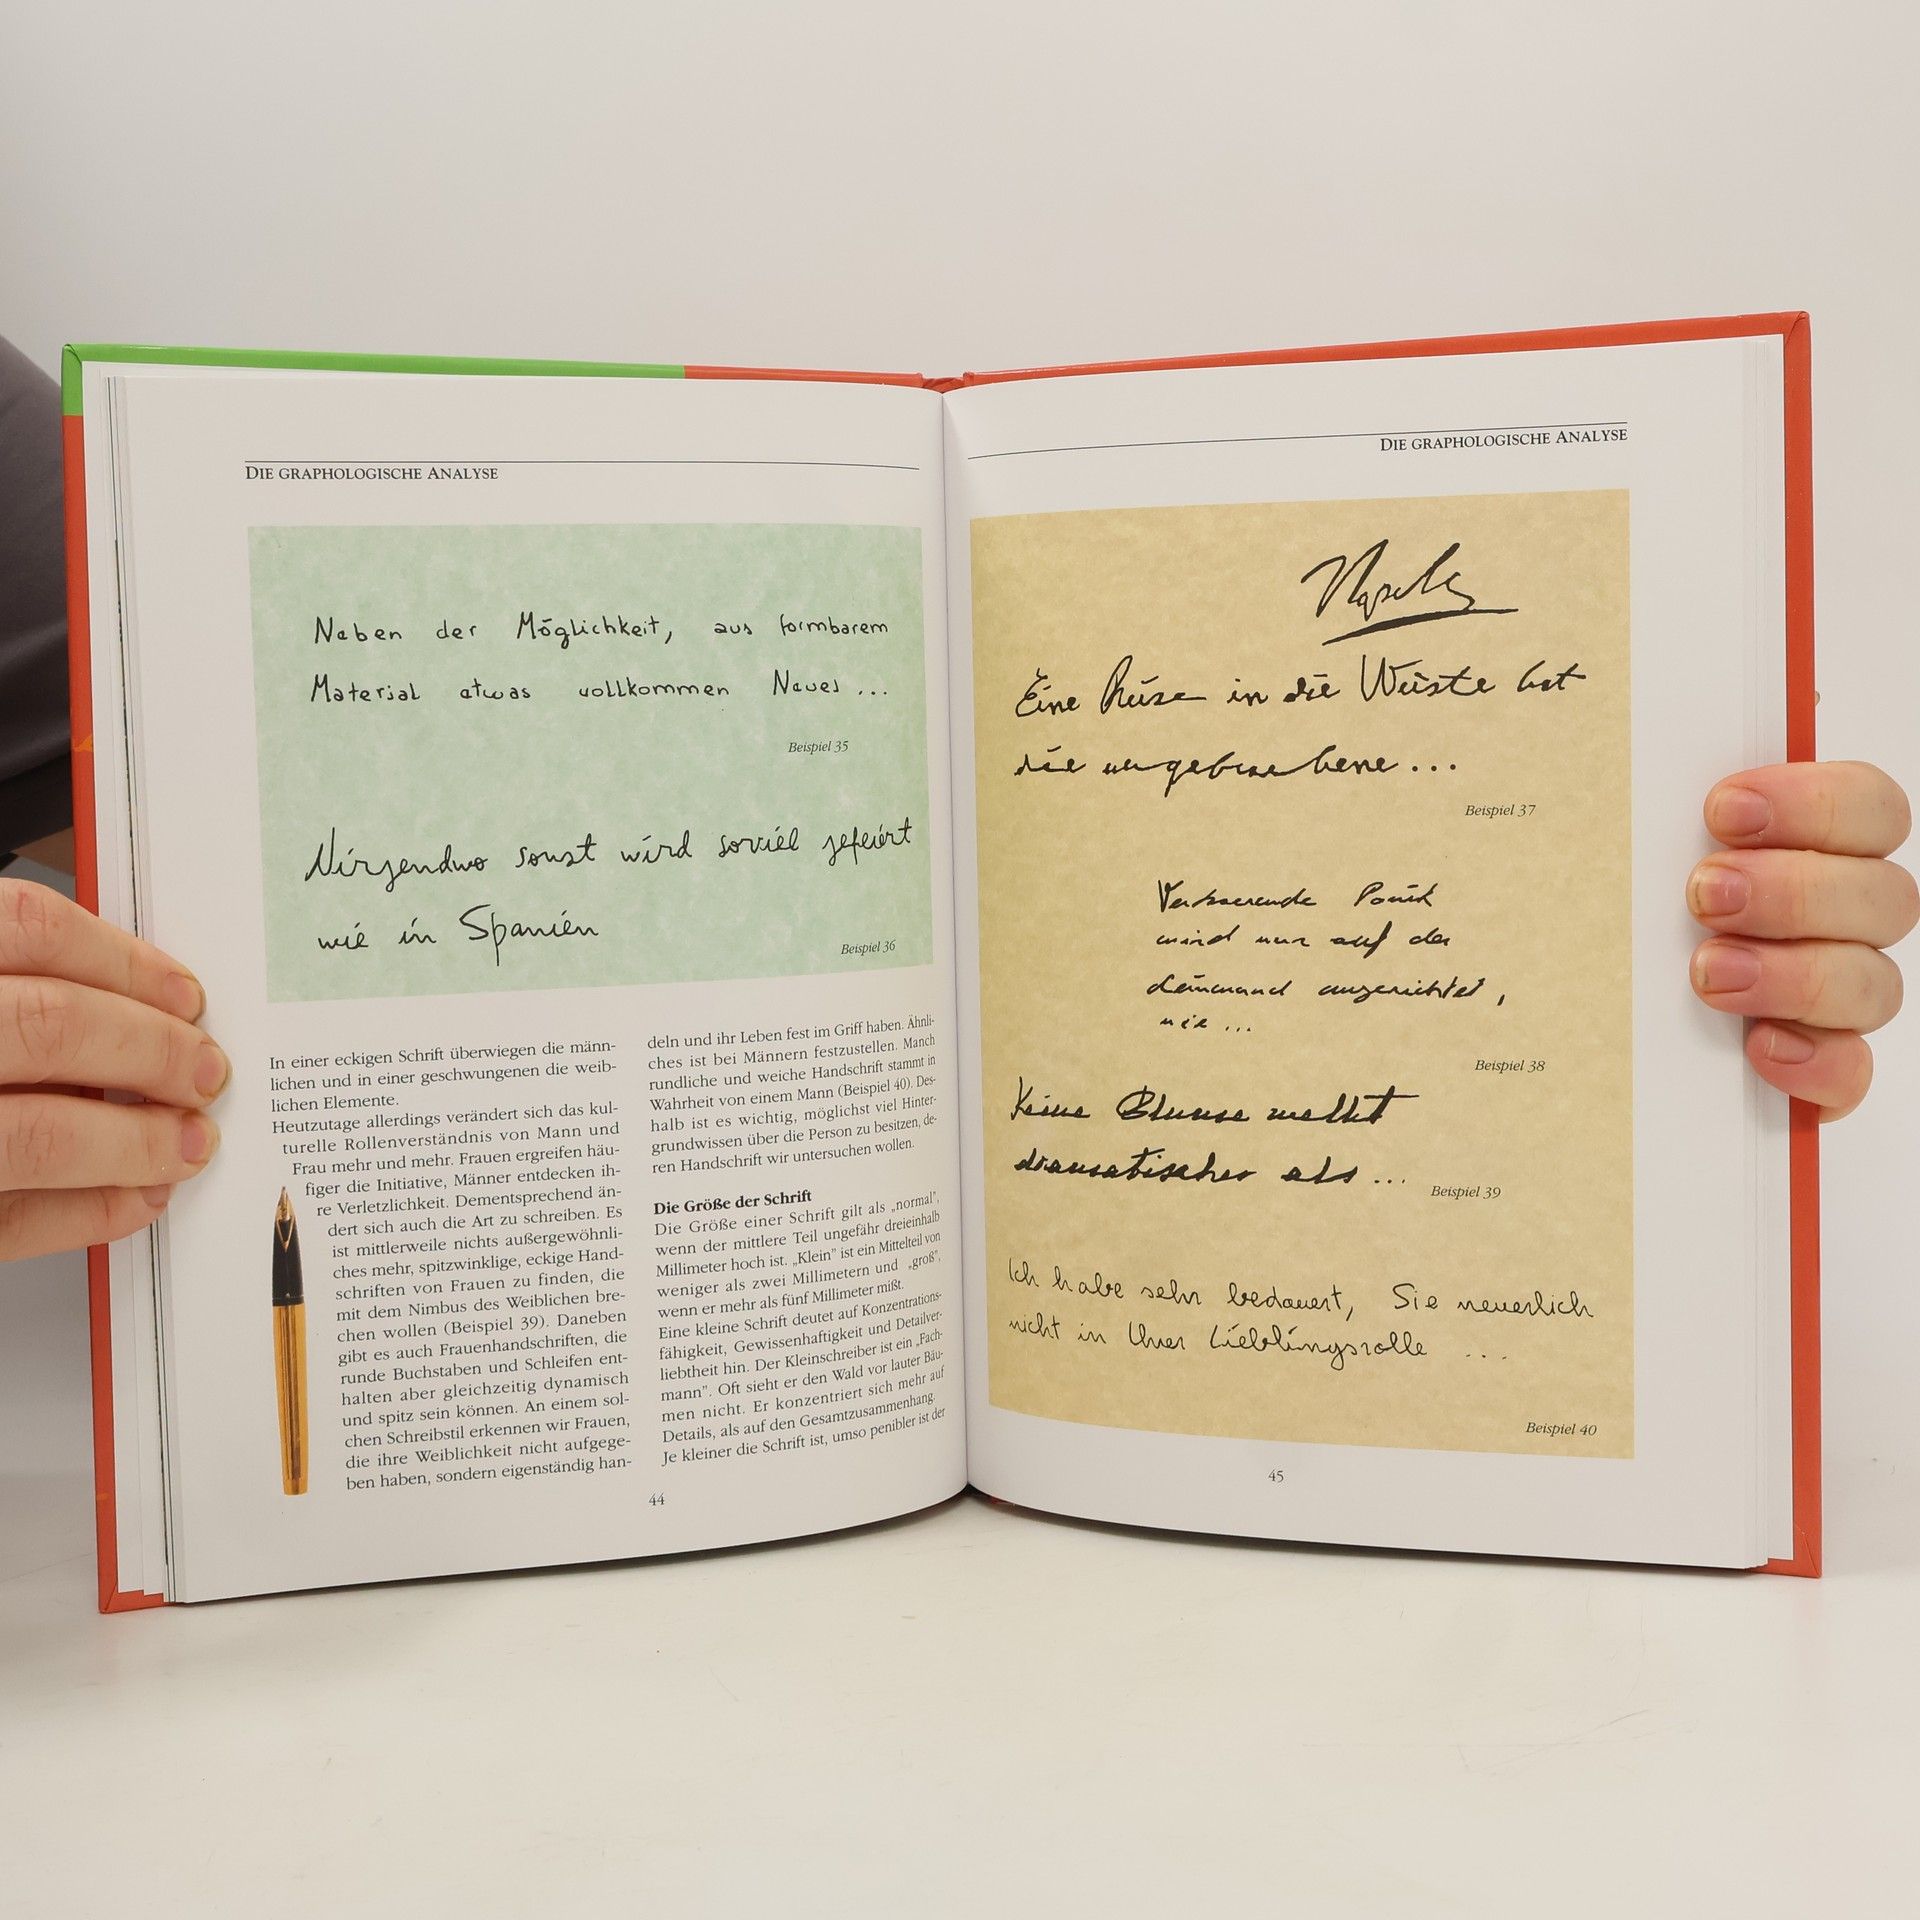 DIE GRAPHOLOGISCHE ANALYSE
Neben der Möglichkeit, aus formbarem
Material etwas vollkommen Neues ...
Beispiel 35
Nirgendwo sonst wird soviel gefeiert
wie in Spanien
Beispiel 36
In einer eckigen Schrift überwiegen die männ-
lichen und in einer geschwungenen die weib-
lichen Elemente.
Heutzutage allerdings verändert sich das kul-
turelle Rollenverständnis von Mann und
Frau mehr und mehr. Frauen ergreifen häu-
figer die Initiative, Männer entdecken ih-
re Verletzlichkeit. Dementsprechend än-
dert sich auch die Art zu schreiben. Es
ist mittlerweile nichts außergewöhnli-
ches mehr, spitzwinklige, eckige Hand-
schriften von Frauen zu finden, die
mit dem Nimbus des Weiblichen bre-
chen wollen (Beispiel 39). Daneben
gibt es auch Frauenhandschriften, die
runde Buchstaben und Schleifen ent-
halten aber gleichzeitig dynamisch
und spitz sein können. An einem sol-
chen Schreibstil erkennen wir Frauen,
die ihre Weiblichkeit nicht aufgege-
ben haben, sondern eigenständig han-
deln und ihr Leben fest im Griff haben. Ähnli-
ches ist bei Männern festzustellen. Manch
rundliche und weiche Handschrift stammt in
Wahrheit von einem Mann (Beispiel 40). Des-
halb ist es wichtig, möglichst viel Hinter-
grundwissen über die Person zu besitzen, de-
ren Handschrift wir untersuchen wollen.
Die Größe der Schrift
Die Größe einer Schrift gilt als „normal”,
wenn der mittlere Teil ungefähr dreieinhalb
Millimeter hoch ist. „Klein” ist ein Mittelteil von
weniger als zwei Millimetern und „groß”,
wenn er mehr als fünf Millimeter mißt.
Eine kleine Schrift deutet auf Konzentrations-
fähigkeit, Gewissenhaftigkeit und Detailver-
liebtheit hin. Der Kleinschreiber ist ein „Fach-
mann”. Oft sieht er den Wald vor lauter Bäu-
men nicht. Er konzentriert sich mehr auf
Details, als auf den Gesamtzusammenhang.
Je kleiner die Schrift ist, umso penibler ist der
44
DIE GRAPHOLOGISCHE ANALYSE
Eine Reise in die Wüste hat
die
Beispiel 37
wird nur auf der
angerichtet,
wie ...
Beispiel 38
Keine Blume welkt
dramatischer als ...
Beispiel 39
Ich habe sehr bedauert, Sie neuerlich
nicht in Ihrer Lieblingsrolle ...
Beispiel 40
45